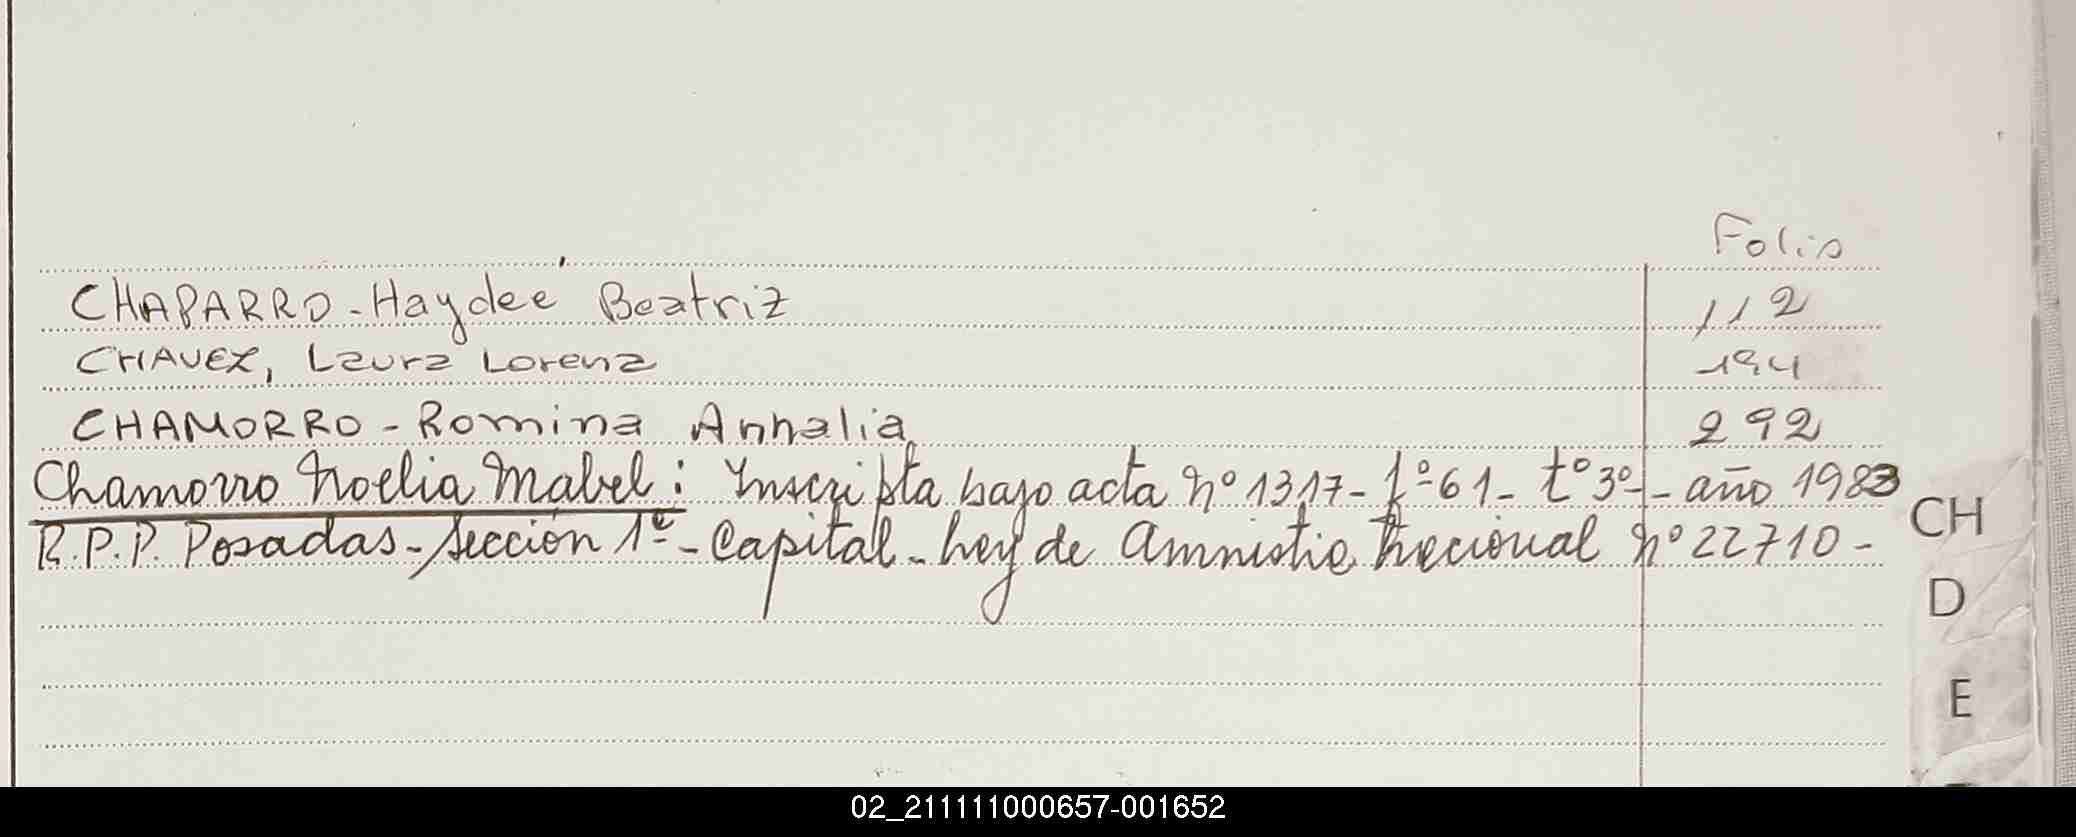 Folio
CHAPARRO - Haydeé Beatriz 112
CHAVEZ, Laura Lorena 194
CHAMORRO - Romina Annalia 292
Chamorro Noelia Mabel: Inscripta bajo acta nº 1317 - fº 61 - tº 3º - año 1983
R.P.P. Posadas - Sección 1ª - Capital - Ley de Amnistia Nacional nº 22710 -
CH
D
E
02_211111000657-001652